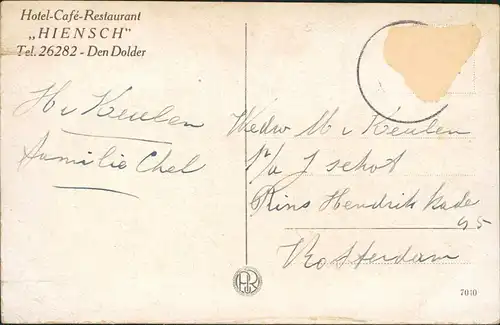 Hotel-Café-Restaurant
„HIENSCH"
Tel. 26282 - Den Dolder
H v Keulen
Familie Chel
Wedw M v Keulen
p/a J schot
Prins Hendrik kade
95
Rotterdam
7010